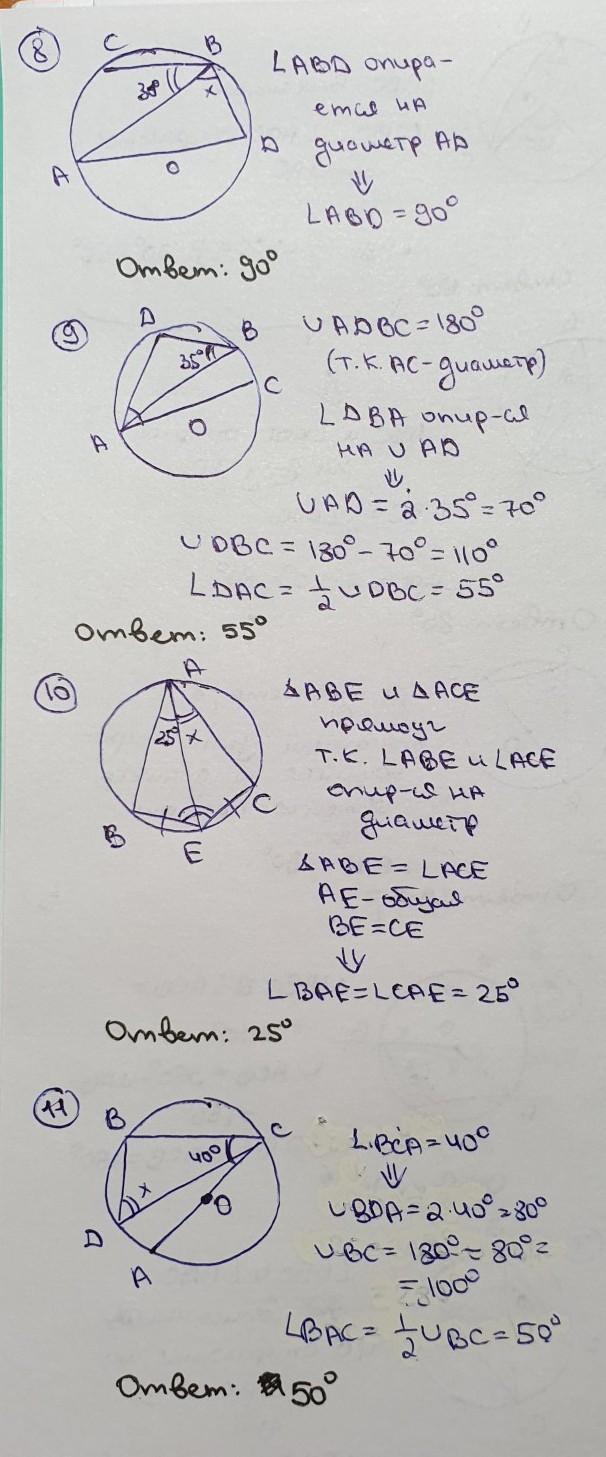 8
C
B
38°
x
A
O
D
∠ABD опира-
ется на
диаметр AD
⇓
∠ABD = 90°
Ответ: 90°
9
D
B
35°
C
A
O
∪ADBC = 180°
(т.к. AC-диаметр)
∠DBA опир-ся
на ∪ AD
⇓
∪AD = 2·35° = 70°
∪DBC = 180° - 70° = 110°
∠DAC = 1/2 ∪DBC = 55°
Ответ: 55°
10
A
25°
x
B
E
C
△ABE и △ACE
прямоуг
т.к. ∠ABE и ∠ACE
опир-ся на
диаметр
△ABE = ∠ACE
AE-общая
BE=CE
⇓
∠BAE=∠CAE = 25°
Ответ: 25°
11
B
C
40°
x
O
D
A
∠BCA = 40°
⇓
∪BDA = 2·40° = 80°
∪BC = 180° - 80° =
= 100°
∠BAC = 1/2 ∪BC = 50°
Ответ: 50°